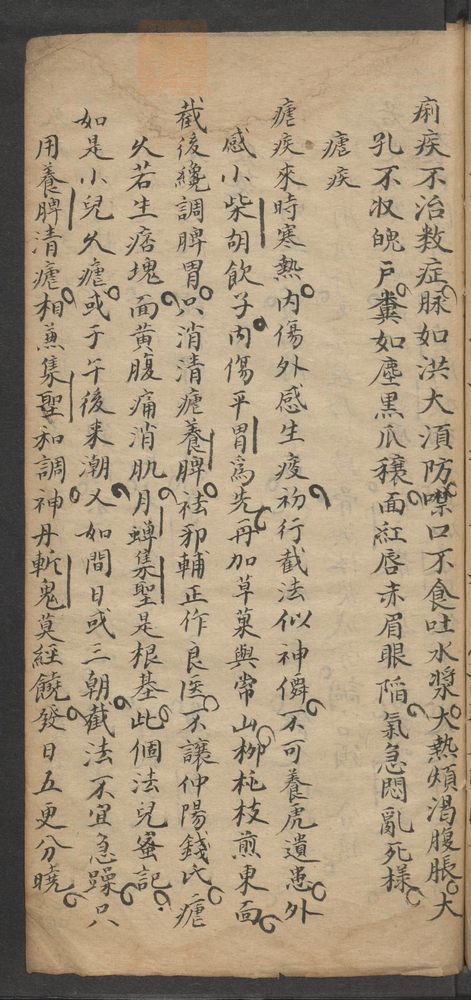 痢疾不治数症脉如洪大湏防噤口不食吐水漿大熱煩渴腹脹大
孔不収魄户糞如塵黒爪穣面紅唇赤眉眼陥氣急悶亂死様
瘧疾
瘧疾來時寒熱内傷外感生疫初行截法似神僊不可養虎遺患外
感小柴胡飲子内傷平胃為先再加草菓與常山柳枝煎東面
截後纔調脾胃只消清瘧養脾祛邪輔正作良医不讓仲陽錢氏瘧
久若生痞塊面黄腹痛消肌月蟬集聖是根基此個法兒蜜記
如是小兒久瘧或于午後来潮又如間日或三朝截法不宜急躁只
用養脾清瘧相兼集聖和調神丹斬鬼莫經饒發日五更分曉